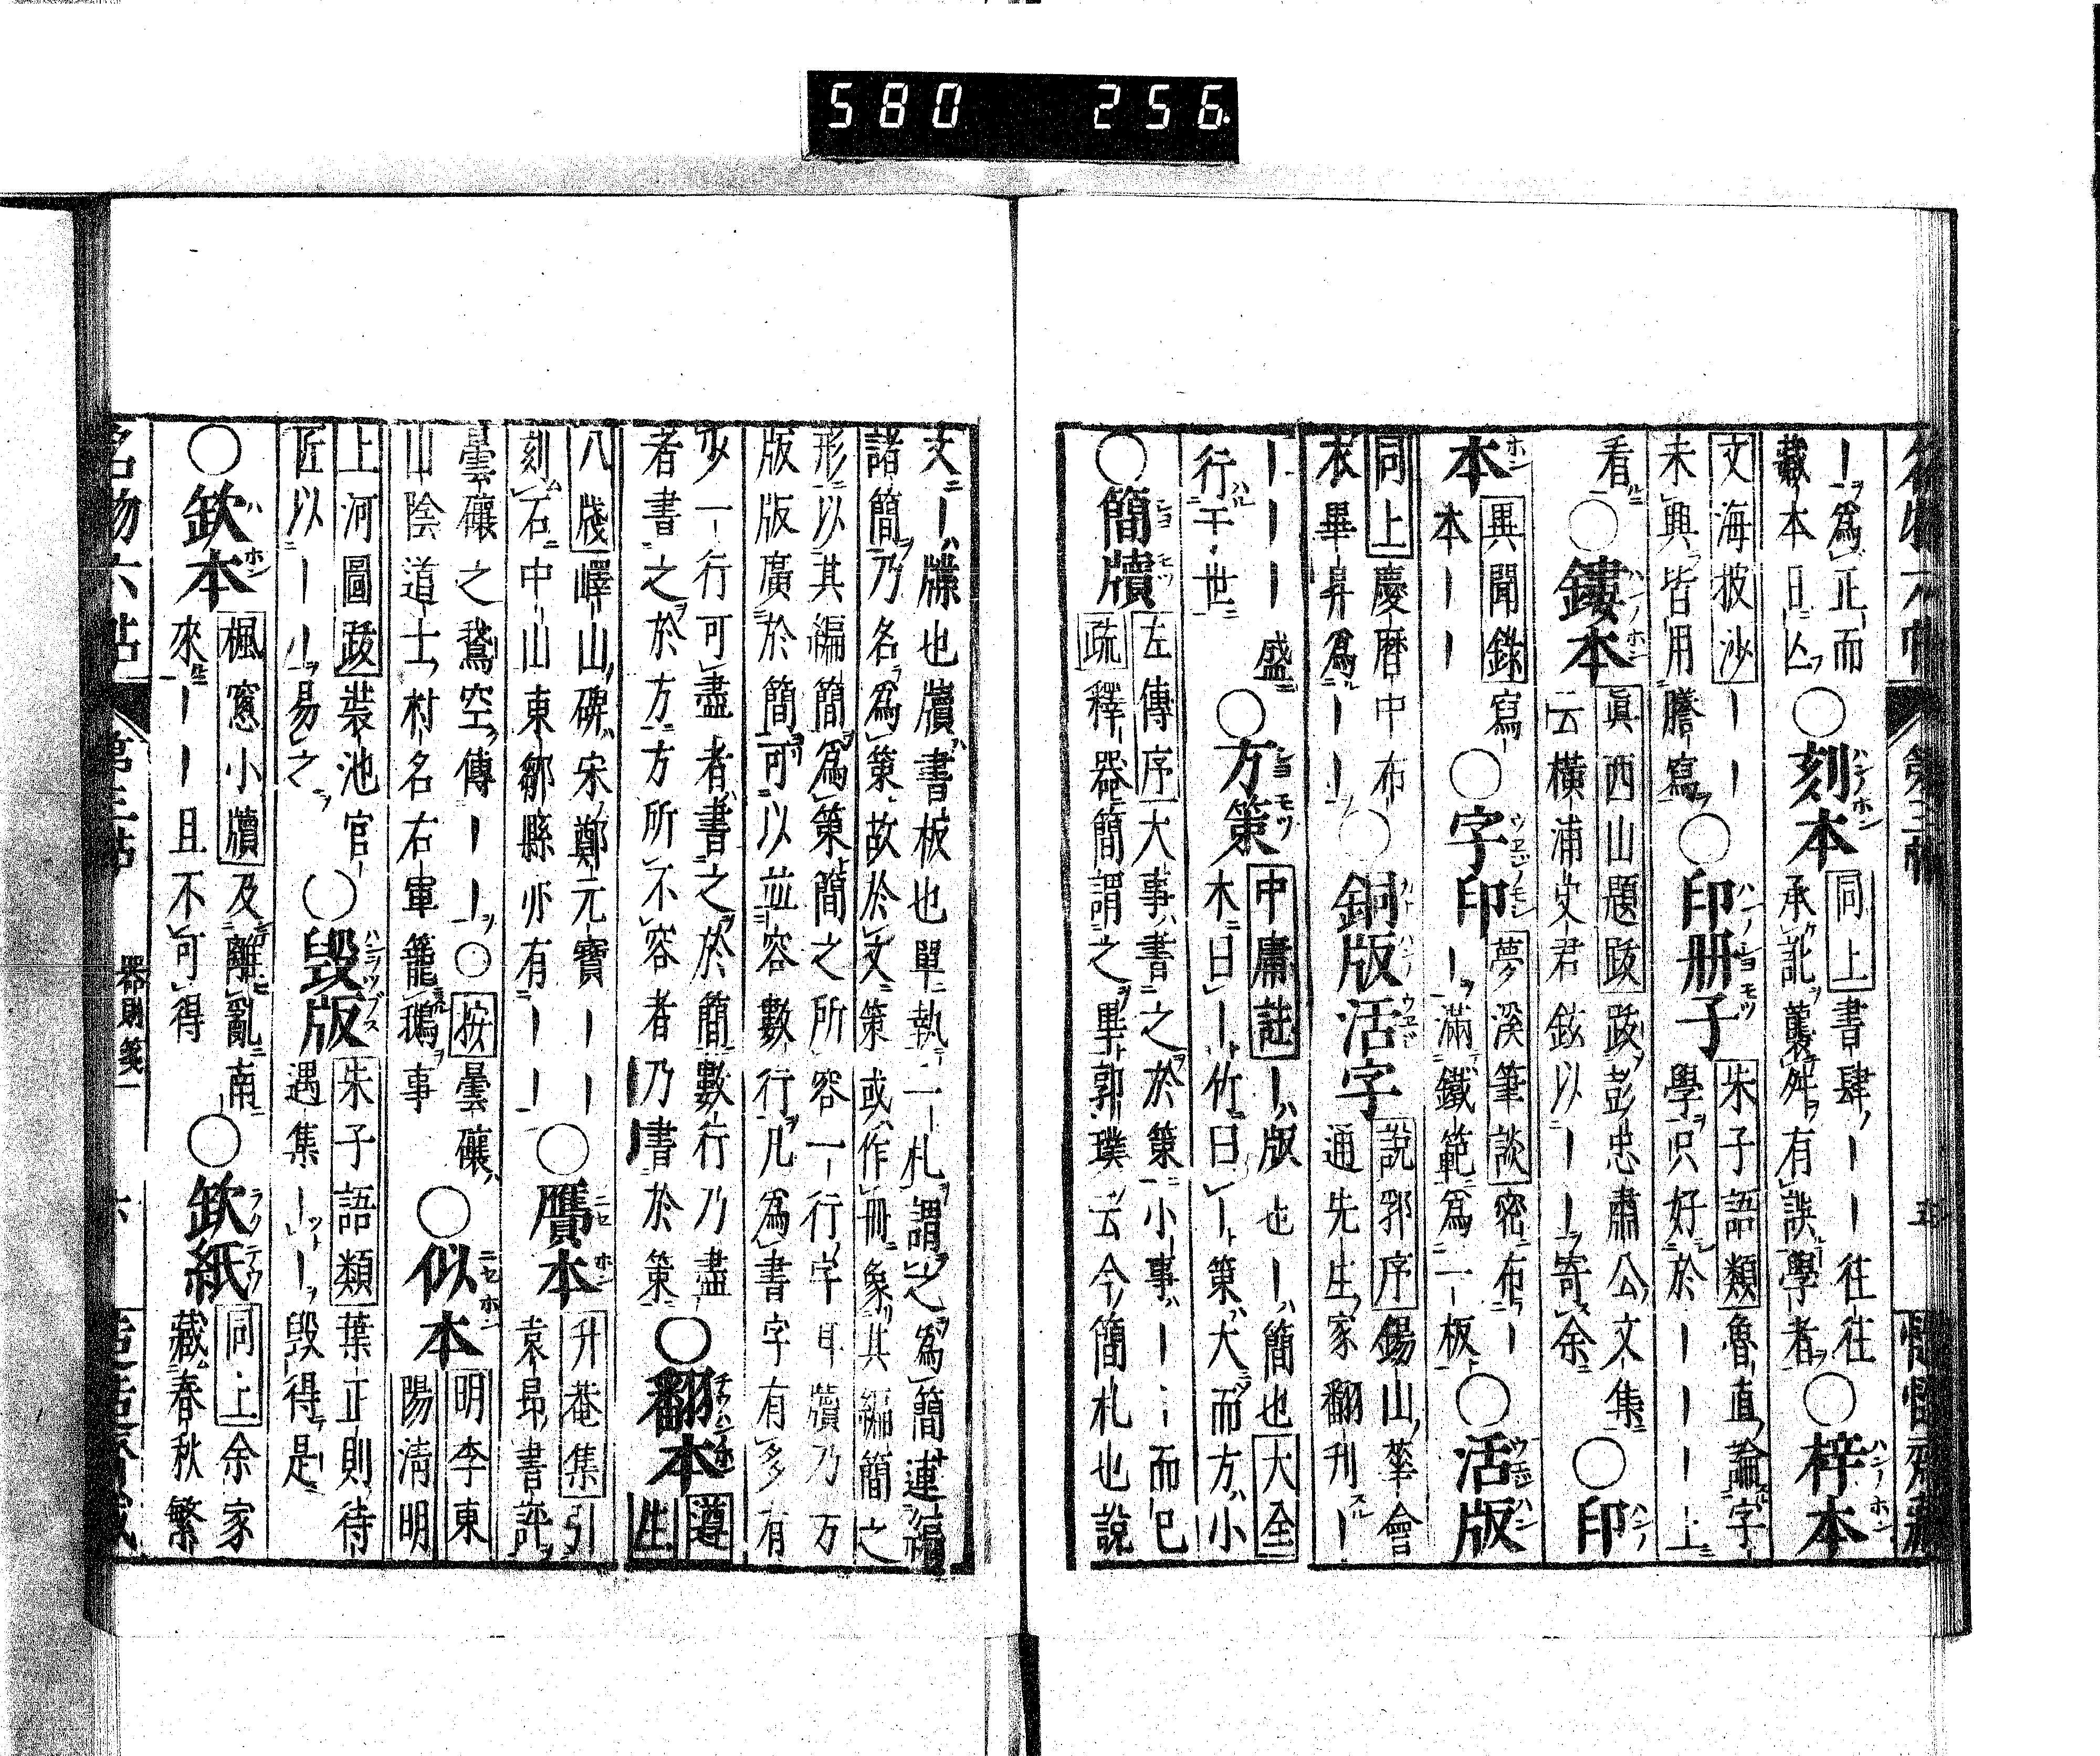 580 256.
丨為正而
藏本日亾○刻本同上書肆丨丨往往
承訛襲舛有誤學者○梓本
文海披沙丨丨
未興皆用謄寫○印册子朱子語類魯直論字
學只好於丨丨丨上
看○鏤本眞西山題跋跋彭忠肅公文集
云横浦史君鉉以丨丨寄余○印
本異聞錄寫
本丨丨○字印夢溪筆談密布丨
丨滿鐵範為一板○活版
同上慶曆中布
衣畢昇為丨丨○銅版活字說郛序錫山華會
通先生家翻刊丨
丨丨丨盛
行于世○方策中庸註丨版也丨簡也大全
木曰丨竹曰丨策大而方小
○簡牘左傳序大事書之於策小事丨丨而已
疏釋器簡謂之畢郭璞云今簡札也說
文丨牒也牘書板也單執一札謂之為簡連編
諸簡乃名為策故於文策或作冊象其編簡之
形以其編簡為策簡之所容一行字耳牘乃方
版版廣於簡可以並容數行凡為書字有多有
少一行可盡者書之於簡數行乃盡
者書之於方方所不容者乃書於策○翻本遵
生
八牋嶧山碑宋鄭元寶丨丨
刻石中山東鄒縣亦有丨丨○贗本升菴集引
袁昻書評
曇𥘵之鵞空傳丨丨○按曇𥘵
山陰道士村名右軍籠鵝事○似本明李東
陽清明
上河圖跋裝池官
匠以丨丨易之○毀版朱子語類葉正則待
遇集丨丨毀得是
○欽本楓窻小牘及離亂南
來丨丨且不可得○欽紙同上余家
藏春秋繁
名物六帖 第三帖 器財箋一